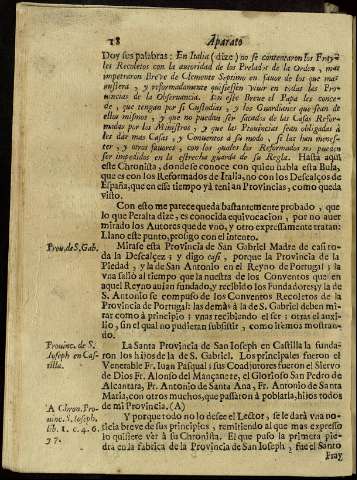 18 Aparato
Doy sus palabras: En Italia (dize) no se contentaron los Fray-
les Recoletos con la autoridad de los Prelados de la Orden, mas
impetraron Breve de Clemente Septimo en favor de los que mas
y reformadamente quisiessen vivir en todas las Pro-
vincias de la Observancia. En este Breve el Papa les conce-
de, que tengan por si Custodias, y los Guardianes que sean de
ellos mismos, y que no puedan ser sacados de las Casas Refor-
madas por los Ministros, y que las Provincias sean obligadas à
les dar mas Casas, y Conventos à su modo, si las han menes-
ter, y otros favores, con los quales los Reformados no pueden
ser impedidos en la estrecha guarda de su Regla. Hasta aqui
este Chronista, donde se conoce con quien habla esta Bula,
que es con los Reformados de Italia, no con los Descalços de
España, que en esse tiempo yà tenian Provincias, como queda
visto.
Con esto me parece queda bastantemente probado, que
lo que Peralta dize, es conocida equivocacion, por no aver
mirado los Autores que de vno, y otro expressamente tratan:
Llano este punto, prosigo con el intento.
Prov. de S. Gab.
Mirase esta Provincia de San Gabriel Madre de casi to-
da la Descalçez; y digo casi, porque la Provincia de la
Piedad, y la de San Antonio en el Reyno de Portugal; la
vna saliò al tiempo que la nuestra de los Conventos que en
aquel Reyno avian fundado, y recibido los Fundadores; y la de
S. Antonio se compuso de los Conventos Recoletos de la
Provincia de Portugal: las demàs à la de S. Gabriel deben mi-
rar como à principio; vnas recibiendo el ser; otras el auxi-
lio, sin el qual no pudieran subsistir, como irèmos mostran-
do.
Provinc. de S.
Ioseph en Cas-
tilla.
La Santa Provincia de San Ioseph en Castilla la funda-
ron los hijos de la de S. Gabriel. Los principales fueron el
Venerable Fr. Iuan Pasqual; sus Coadjutores fueron el Siervo
de Dios Fr. Alonso del Mançanete, el Glorioso San Pedro de
Alcantara, Fr. Antonio de Santa Ana, Fr. Antonio de Santa
Maria, con otros muchos, que passaron à poblarla, hijos todos
de mi Provincia. (A)
A Chron. Pro-
vinc. S. Ioseph.
lib. 1. c. 4. 6.
y 7.
Y porque todo no lo desee el Lector, se le darà vna no-
ticia breve de sus principios, remitiendo al que mas expresso
lo quisiere vèr à su Chronista. El que puso la primera pie-
dra en la fabrica de la Provincia de San Ioseph, fue el Santo
Fray